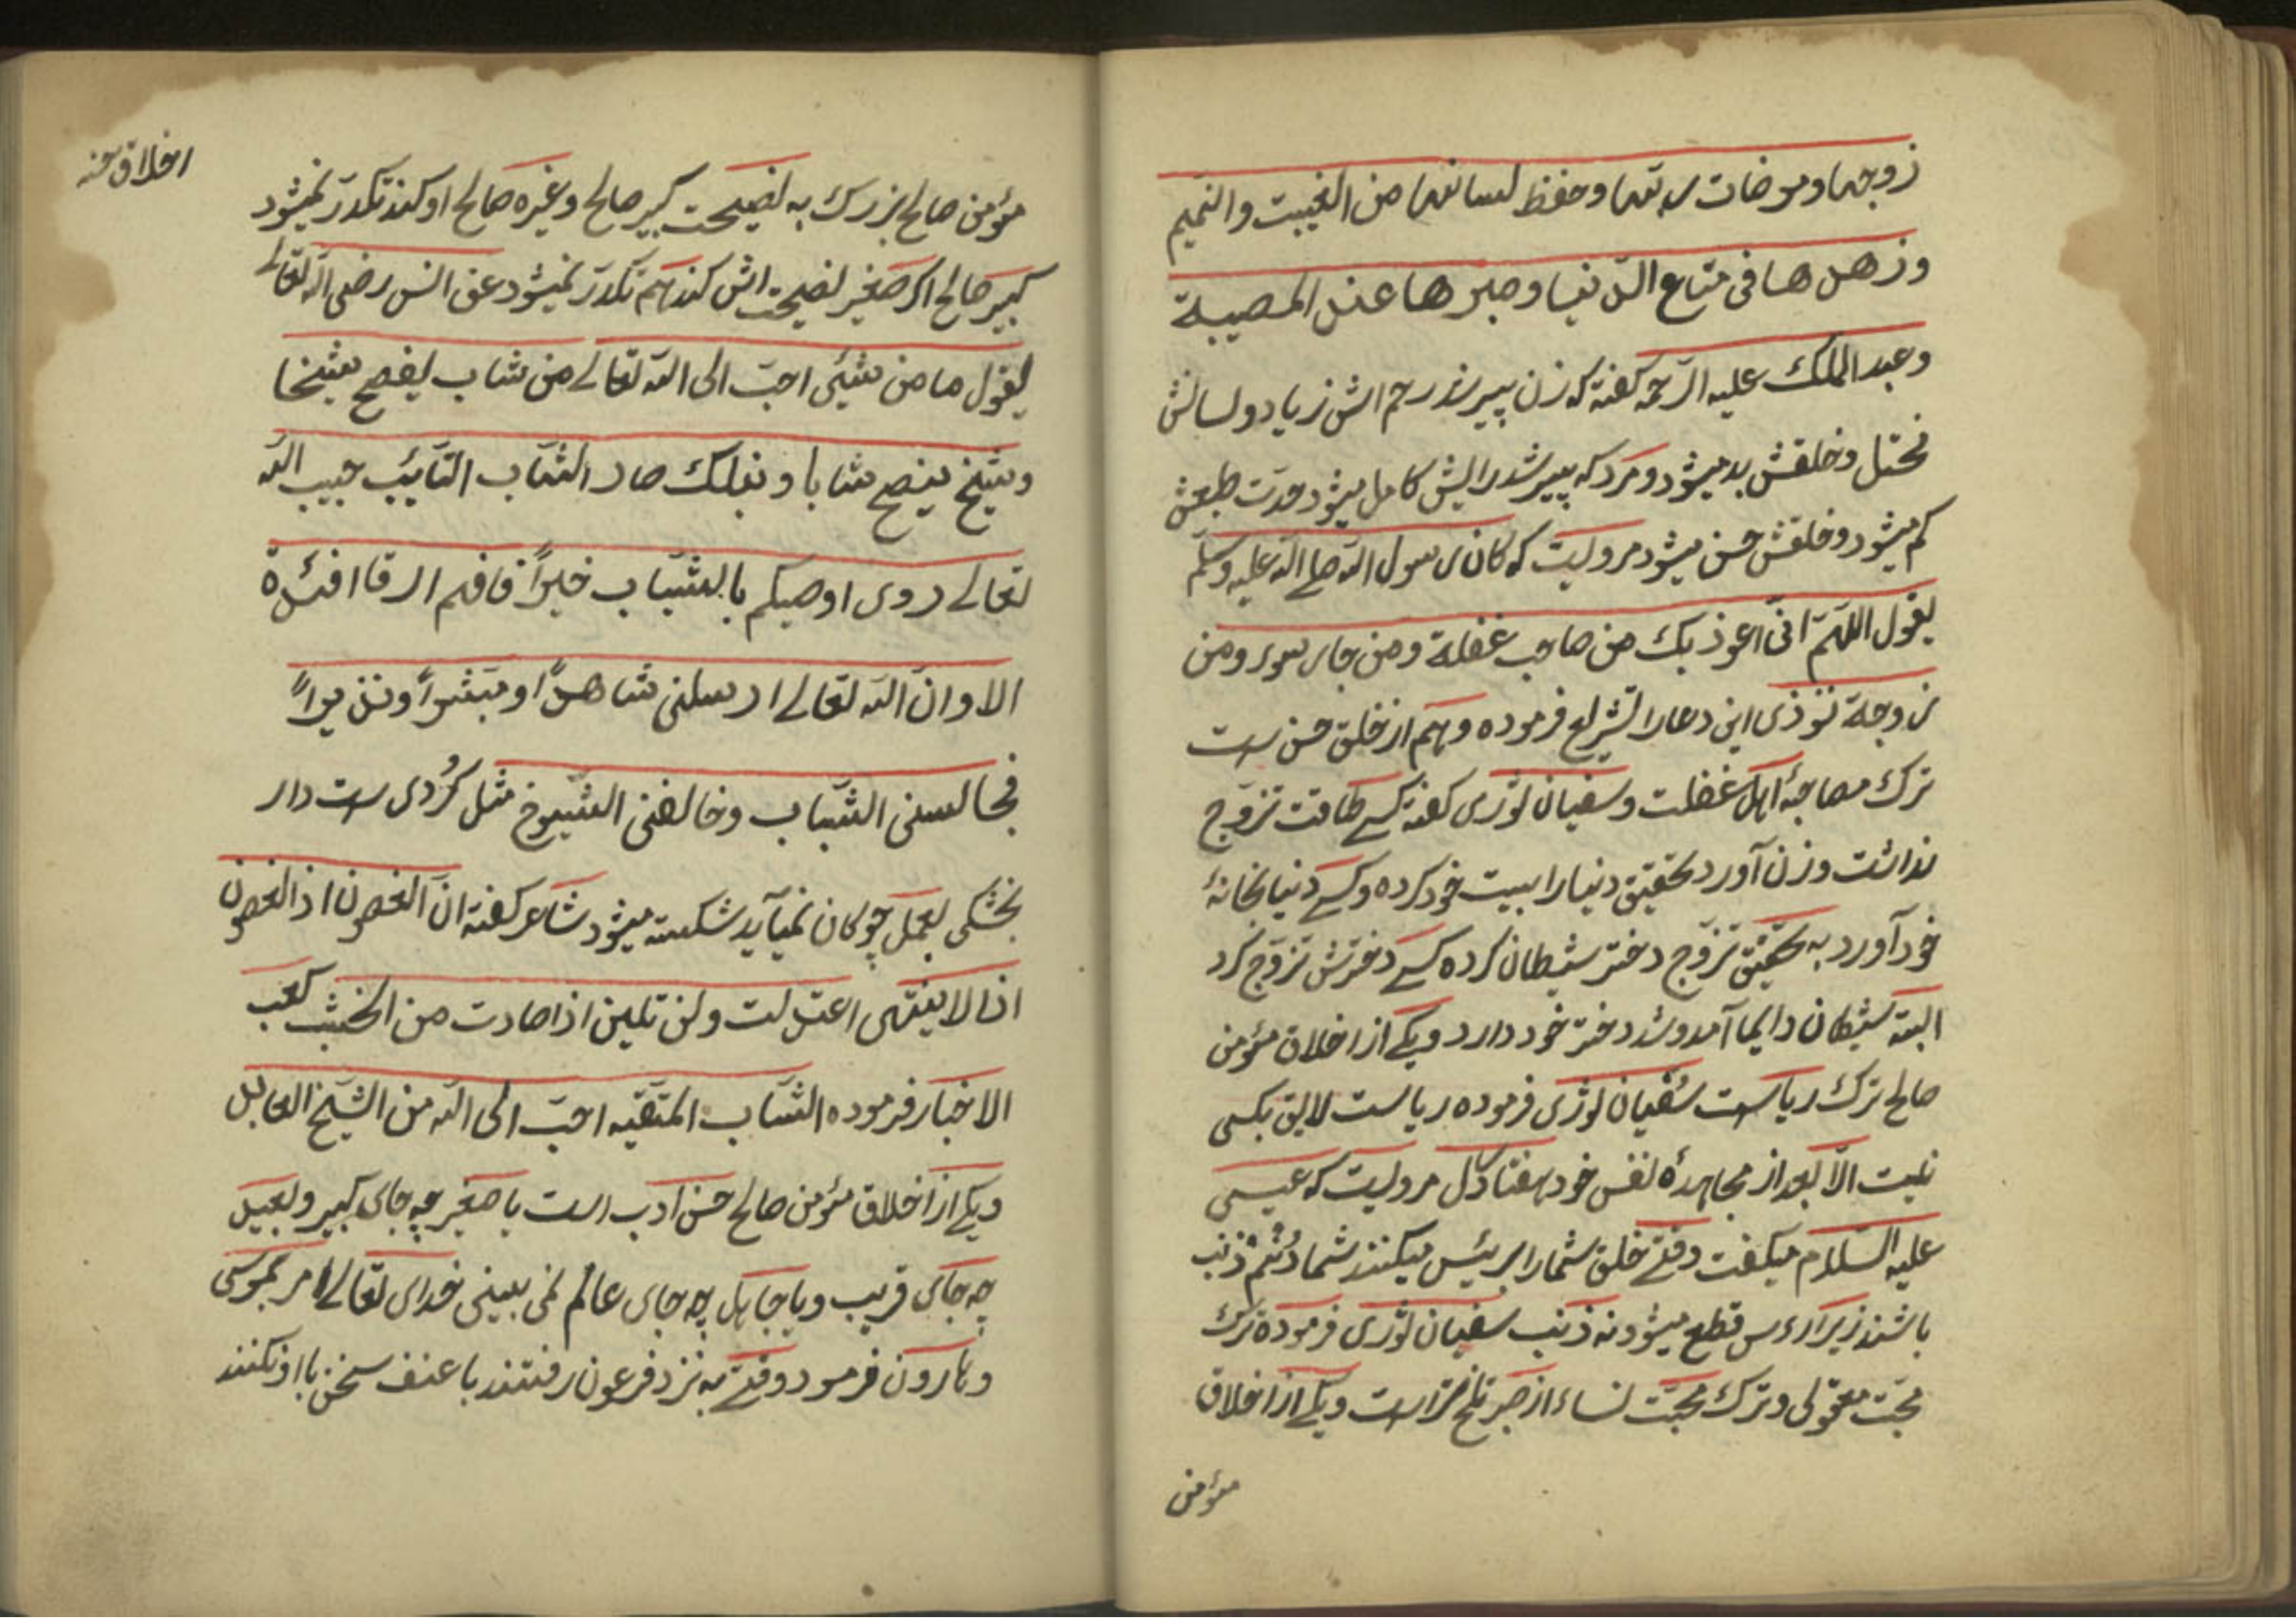 زوجها ومرضات ربها وحفظ لسانها من الغيبت والنميم
وزهدها فی متاع الدّنيا وصبرها عند المصيبة
وعبد الملك عليه الرّحمه كفته كه زن پير شد رحم اش زياد ولسانش
مختل وخلقش بد ميشود ومرد كه پير شد رایش كامل ميشود حدّت طبعش
كم ميشود وخلقش حسن ميشود مرويست كه كان رسول الله صلے الله عليه وسلّم
يقول اللهمّ انّی اعوذ بك من صاحب غفلة ومن جار سوء ومن
زوجة توذی اين دعا را تشريع فرموده وهم از خلق حسن ست
ترك مصاحبۀ اهل غفلت وسفيان ثوری كفته كسے طاقت تزوّج
نداشت وزن آورد تحقيق دنيا را ببيت خود كرده وكسے دنيا بخانۀ
خود آورد به تحقيق تزوّج دختر شيطان كرده كسے دخترش تزوّج كرد
البته شيطان دايما آمد وشد دختر خود دارد ويكے از اخلاق مؤمن
صالح ترك رياست سُفيان ثوری فرموده رياست لايق بكسی
نيست الّا بعد از مجاهدۀ نفس خود هفتاد سال مرويست كه عيسی
عليه السّلام ميكفت وقتے خلق شما را برئيس ميكنند شما دُم ذنب
باشند زيرا رءس قطع ميشود نه ذنب سفيان ثوری فرموده ترك
محبّت مقولی وترك محبّت نساء از صبر تلخ تر است ويكے از اخلاق
مؤمن
اخلاق حسنه
مؤمن صالح بزرك به نصيحت كبير صالح وغيره صالح او كند تكدّر نميشود
كبير صالح اكر صغير نصيحت اش كند هم تكدّر نميشود عن انس رضی الله تعالے
يقول ما من شیئ احبّ الی الله تعالے من شاب ينصح شيخا
وشيخ ينصح شابا وبذلك صار الشاب التائب حبيب الله
تعالے روی اوصيكم بالشباب خيراً فانهم ارقا افئدة
الا وانّ الله تعالے ارسلنی شاهداً ومبشراً ونذيراً
فجالسنی الشّباب وخالفنی الشيوخ مثل كُردی ست دار
بخشكی بعمل چوكان نميآيد شكسته ميشود شاعر كفته انّ الغصون اذ الغصون
اذا لاينتهی اعتدلت ولن تلين اذا صادت من الخشب كعب
الاخبار فرموده الشّاب المتقيه احبّ الی الله من الشّيخ العابل
ويكے از اخلاق مؤمن صالح حسن ادب است با صغير چه جای كبير ولبعيد
چه جای قريب وبا جاهل چه جای عالم نمی بينی خدای تعالے امر بموسی
وهارون فرمود وقتے به نزد فرعون رفتند با عنف سخن با او نكنند